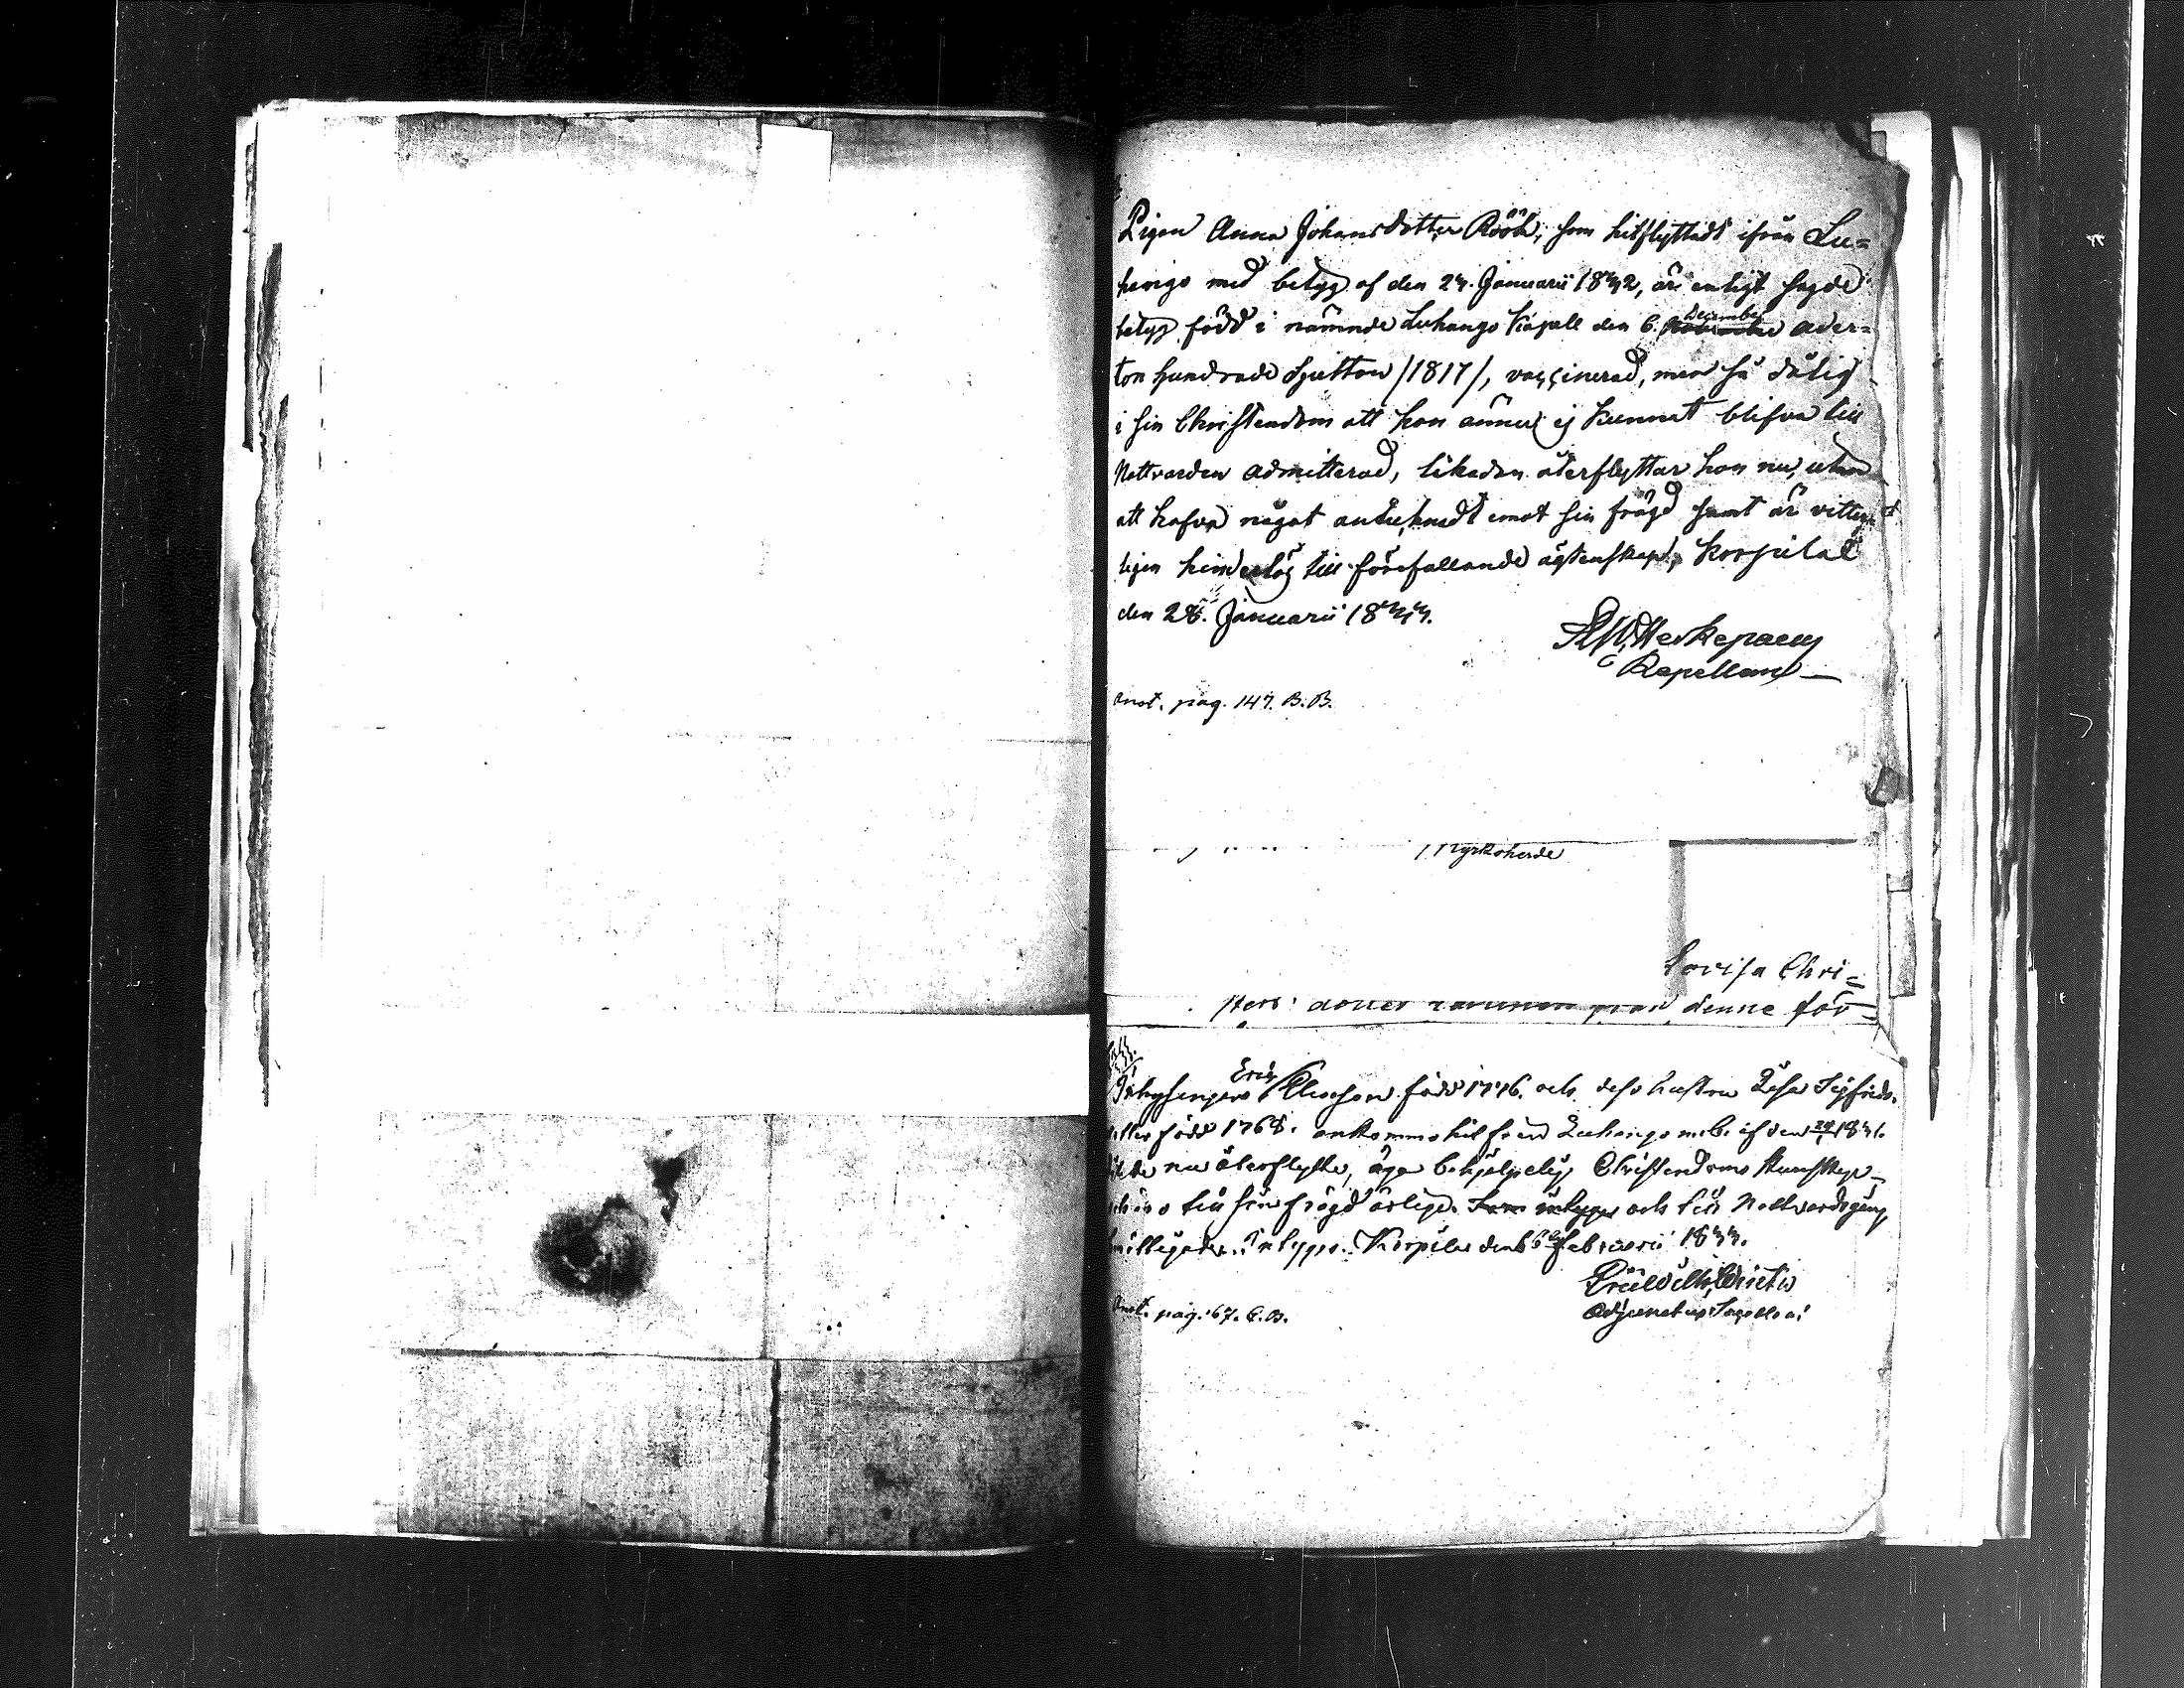 Pigan Anna Johansdotter Röök, som hitflyttadt ifrån Lu=
hango med betyg af den 24. Januarii 1842, är enligt sagde
betyg född i nämnde Luhango Kapell den 6. December ader=
ton hundrade Sjutton /1817/, vaccinerad, men så dålig
i sin Christendom att hon ännu ej kunnat blifva till
Nattvarden admitterad, likadan återflyttar hon nu, utan
att hafva något anteknadt emot sin frägd samt är vitter=
ligen hinderlös till förefallande ägtenskap, Korpilax
den 28. Januarii 1844.
Kapellan
Anot. pag. 147. B.B.
Kyrkoherde
Lovisa Chri=
denne för=
Inhysingen Eric Elias son född 1776. och dess hustru Lisa Sigfrids=
dotter född 1768. ankomne hit från Luhango m.b. af den 1841.
nu återflytta, äga behjelpelig Christendoms kunskap
till sin frägd ärlige. Som intygas och till Nattvardsgång
intygas. Korpilax den 6 Februarii 1844.
Adjunctus Sacella:
Anot. pag. 67. C.B.